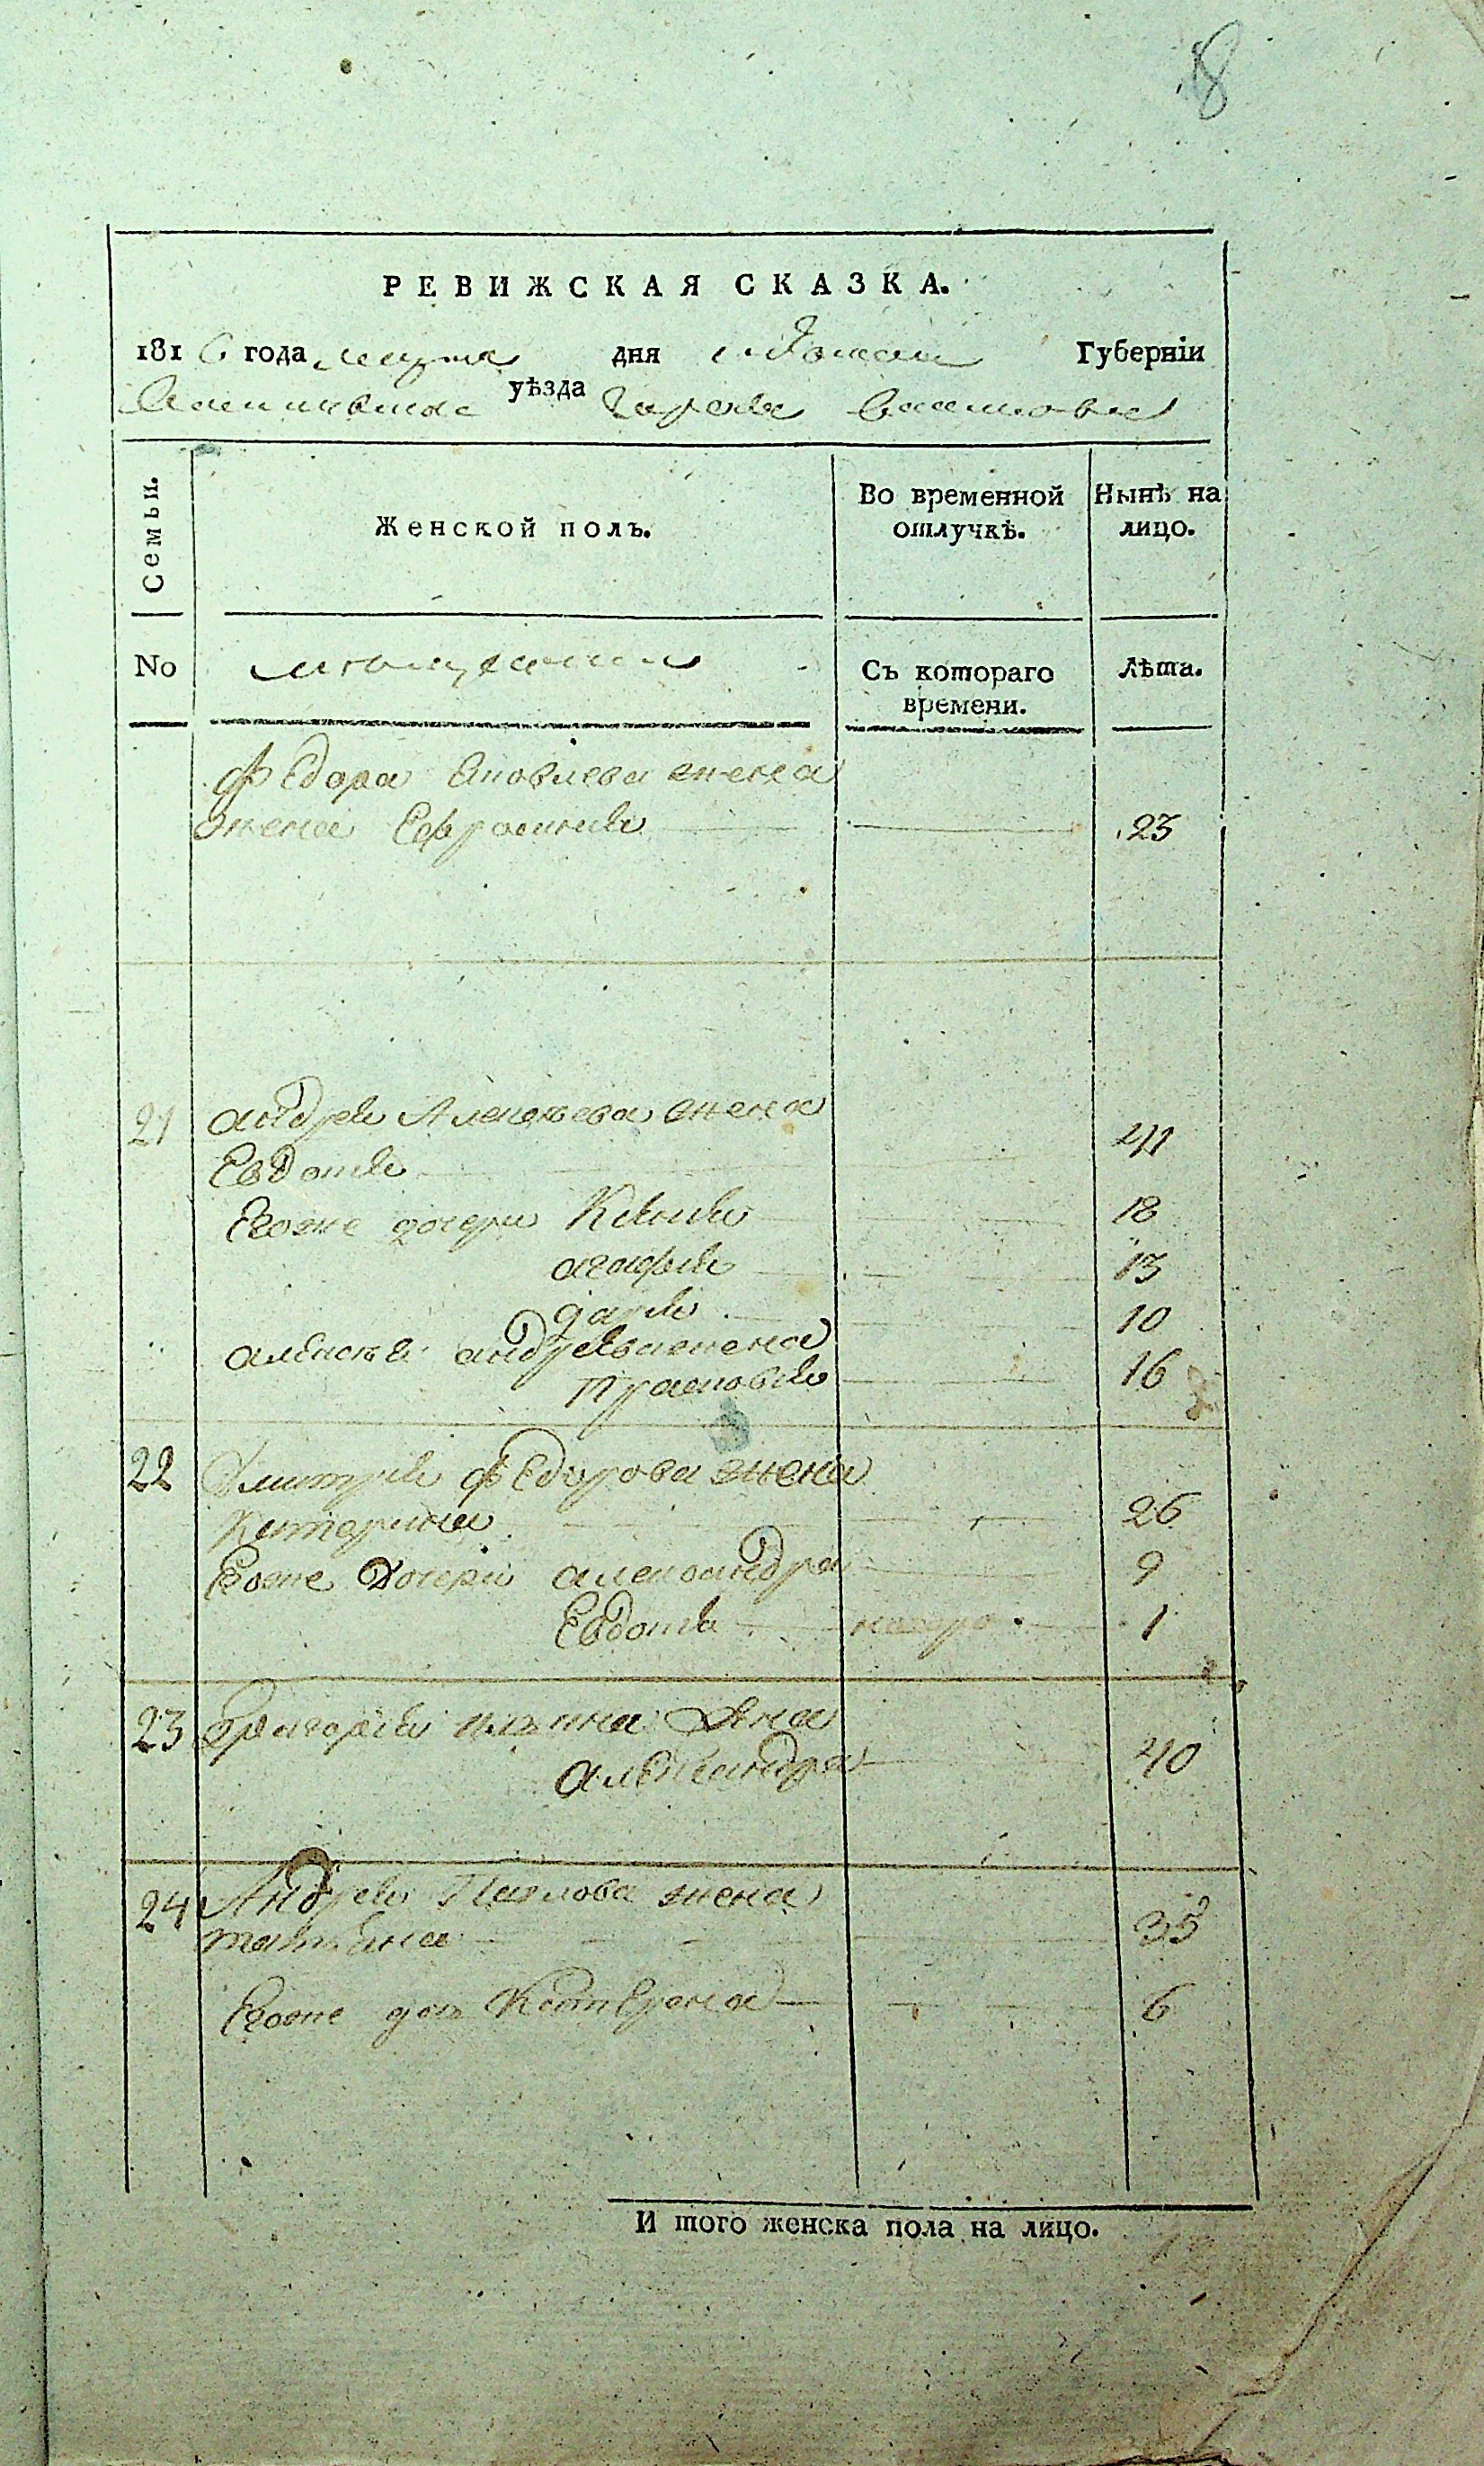 8
РЕВИЖСКАЯ СКАЗКА.
181 6 года марта дня Губернїи
уѣзда города
Семьи.
Женской полъ.
Во временной отлучкѣ.
Нынѣ на лицо.
No
мещанъ
Съ котораго времени.
Лѣта.
Федора Яковлева жена
жена Ефросинья 23
21 андрея Алексеева жена
Евдотья 41
Евоже дочери 18
агафья 13
дарья 10
алексѣя андреева жена
Прасковья 16
22 Дмитрея Федорова жена
Катерина 26
Евоже Дочери александра 9
Евдотья 1
23 Григорья жена
александра 40
24 Андрея Павлова жена
татьяна 35
Евоже дочь Катерена 6
И того женска пола на лицо.
12